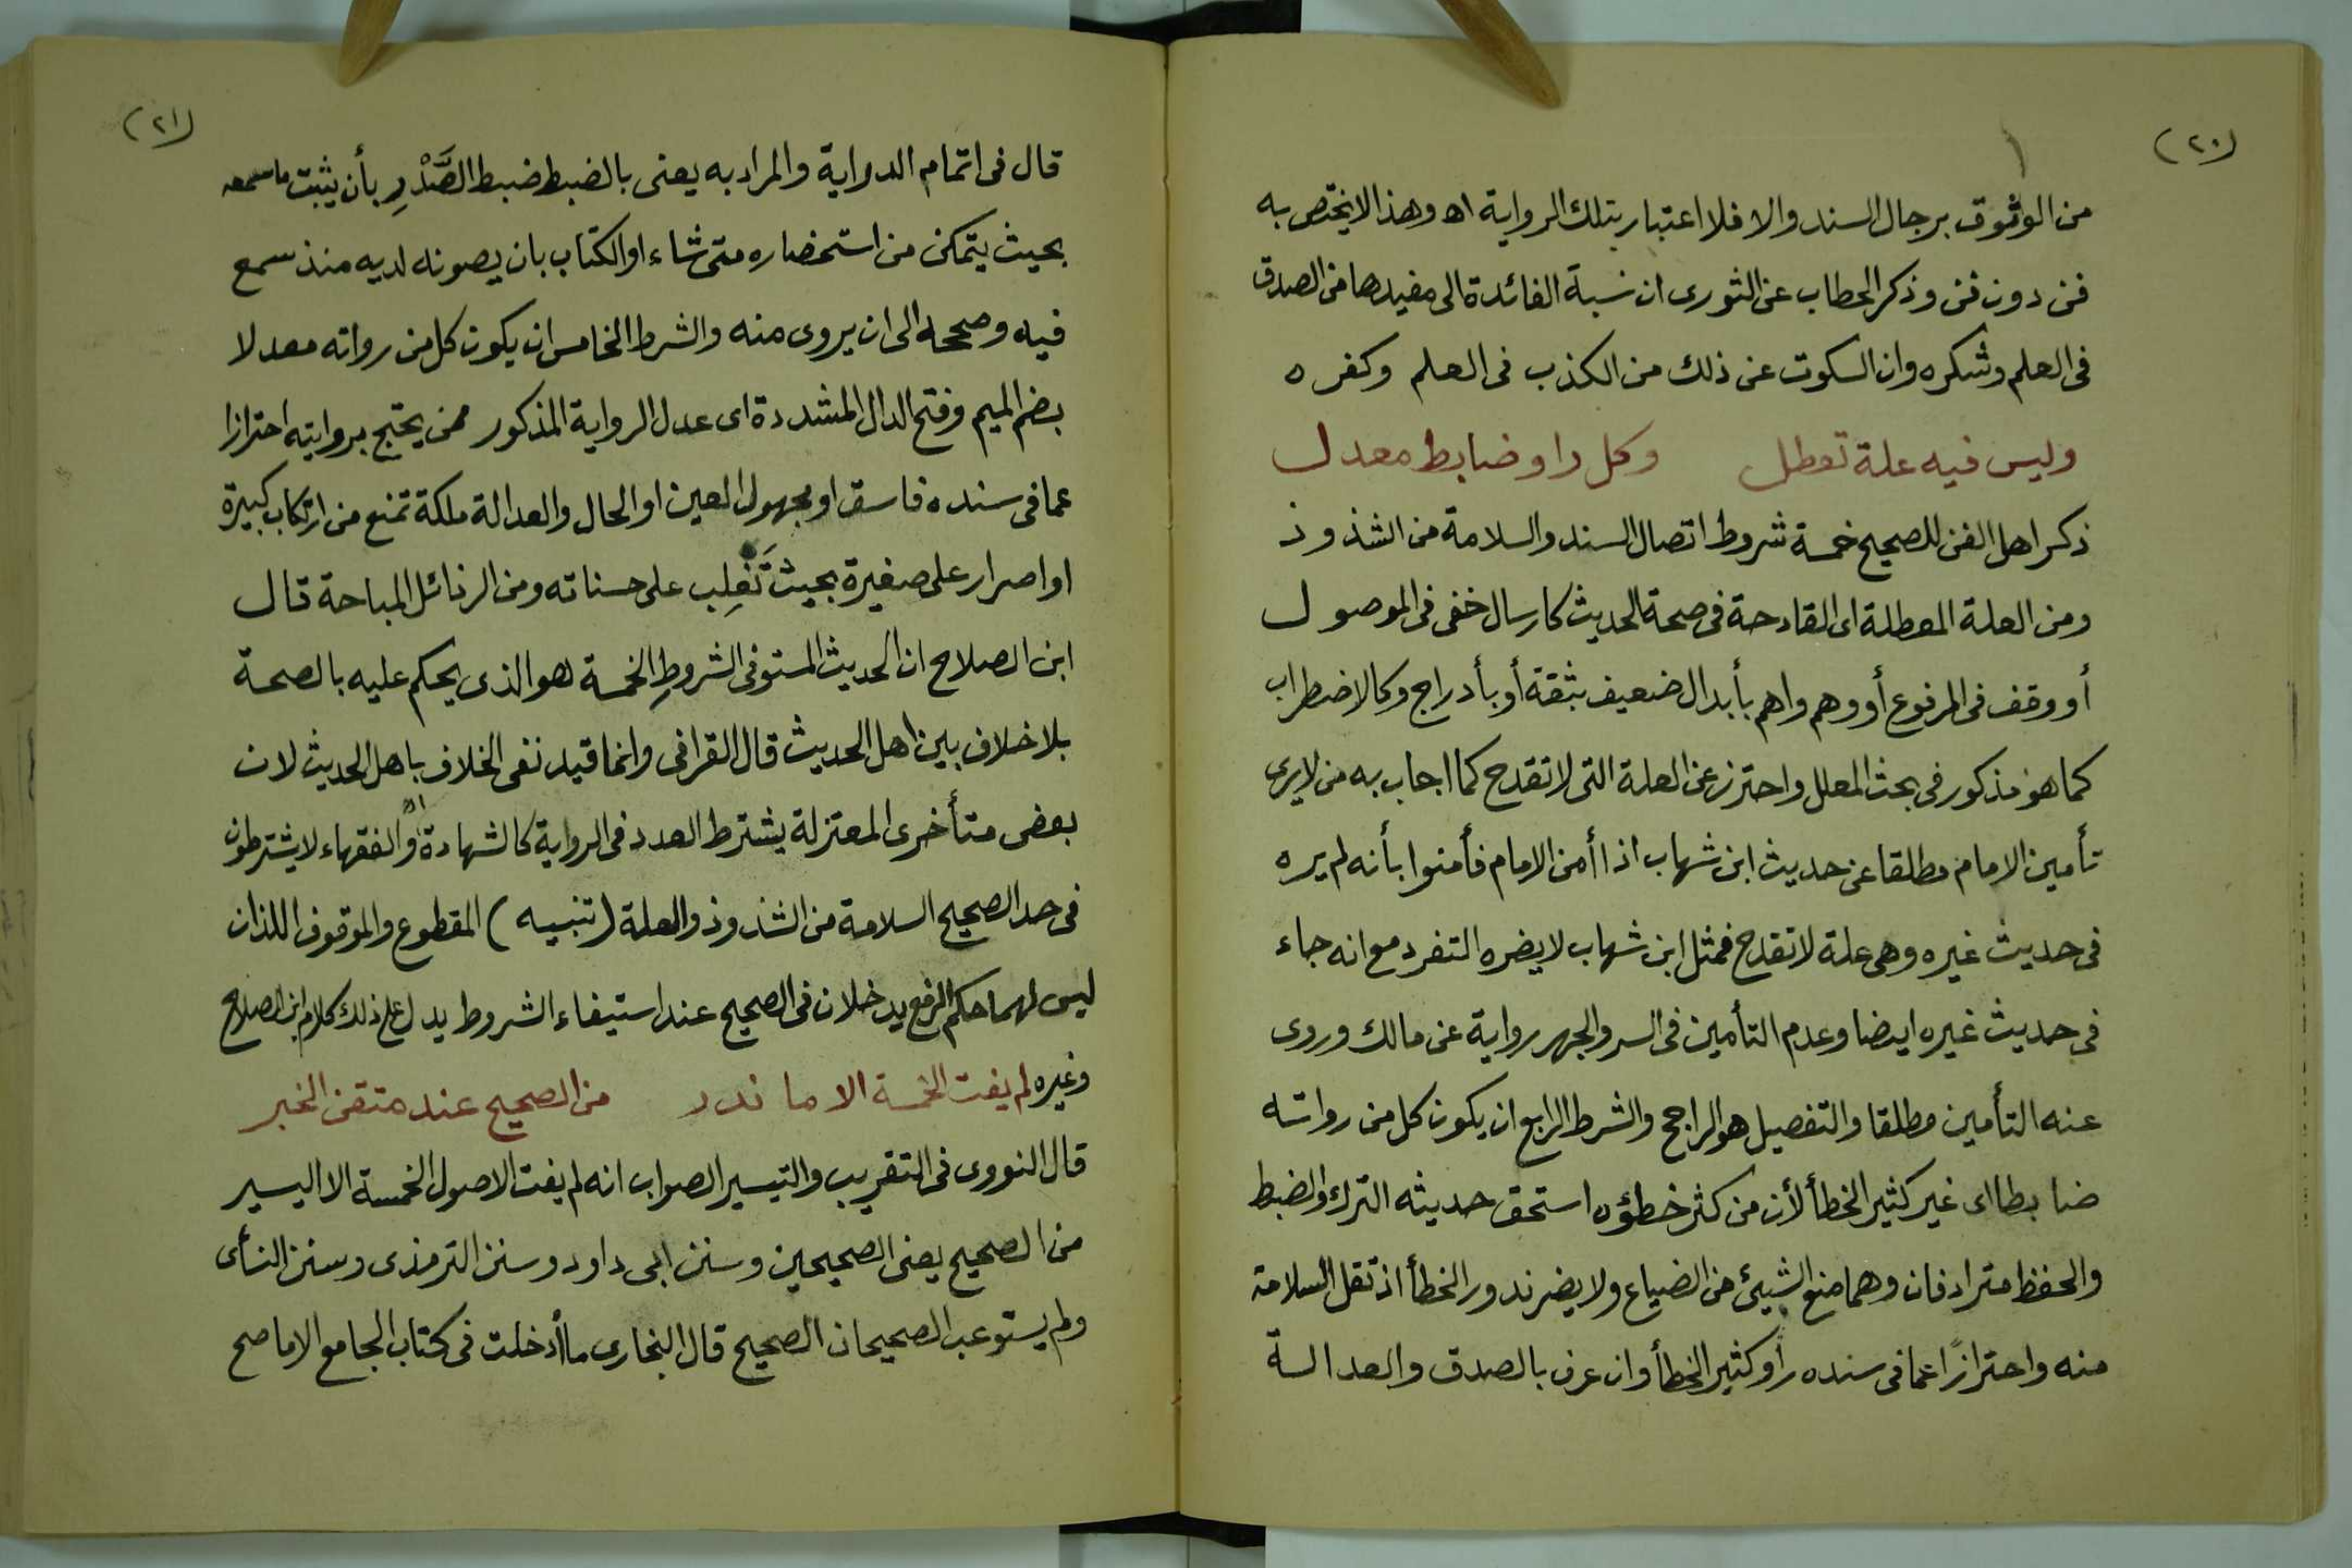 (٢٠)
من الوثوق برجال السند والا فلا اعتبار بتلك الرواية اه وهذا لا يختص به
فن دون فن وذكر الحطاب عن الثورى ان نسبة الفائدة الى مفيدها من الصدق
فى العلم وشكره وان السكوت عن ذلك من الكذب فى العلم وكفره
وليس فيه علة تعطل وكل راو ضابط معدل
ذكر اهل الفن للصحيح خمسة شروط اتصال السند والسلامة من الشذوذ
ومن العلة المعطلة اى القادحة فى صحة الحديث كارسال خفى فى الموصول
أو وقف فى المرفوع أو وهم واهم بأبدال ضعيف بثقة أو بأدراج وكالاضطراب
كما هو مذكور فى بحث المعلل واحترز عن العلة التى لا تقدح كما اجاب به من لا يرى
تأمين الامام مطلقا عن حديث ابن شهاب اذا أمن الامام فأمنوا بأنه لم يره
فى حديث غيره وهى علة لا تقدح فمثل ابن شهاب لا يضره التفرد مع انه جاء
فى حديث غيره ايضا وعدم التأمين فى السر والجهر رواية عن مالك وروى
عنه التأمين مطلقا والتفصيل هو الراجح والشرط الرابع ان يكون كل من رواته
ضابطا اى غير كثير الخطأ لأن من كثر خطؤه استحق حديثه الترك والضبط
والحفظ مترادفان وهما منع الشيئ من الضياع ولا يضر ندور الخطأ اذ تقل السلامة
منه واحترازًا عما فى سنده راو كثير الخطأ وان عرف بالصدق والعدالة
(٢١)
قال فى اتمام الدراية والمراد به يعنى بالضبط ضبط الصَّدْرِ بأن يثبت ما سمعه
بحيث يتمكن من استحضاره متى شاء او الكتاب بان يصونه لديه منذ سمع
فيه وصححه الى ان يروى منه والشرط الخامس ان يكون كل من رواته معدلا
بضم الميم وفتح الدال المشددة اى عدل الرواية المذكور ممن يحتج بروايته احترازا
عما فى سنده فاسق او مجهول العين او الحال والعدالة ملكة تمنع من ارتكاب كبيرة
او اصرار على صغيرة بحيث تَغلِب على حسناته ومن الرذائل المباحة قال
ابن الصلاح ان الحديث المستوفى الشروطِ الخمسة هو الذى يحكم عليه بالصحة
بلا خلاف بين اهل الحديث قال القرافى وانما قيد نفى الخلاف باهل الحديث لان
بعض متأخرى المعتزلة يشترط العدد فى الرواية كالشهادة والفقهاء لا يشترطون
فى حد الصحيح السلامة من الشذوذ والعلة (تنبيه) المقطوع والموقوف اللذان
ليس لهما حكم الرفع يدخلان فى الصحيح عند استيفاء الشروط يدل على ذلك كلام ابن الصلاح
وغيره لم يفت الخمسة الا ما ندر من الصحيح عند متقن الخبر
قال النووى فى التقريب والتيسير الصواب انه لم يفت الاصول الخمسة الا اليسير
من الصحيح يعنى الصحيحين وسنن ابى داود وسنن الترمذى وسنن النسأى
ولم يستوعب الصحيحان الصحيح قال البخارى ما أدخلت فى كتاب الجامع الا ما صح